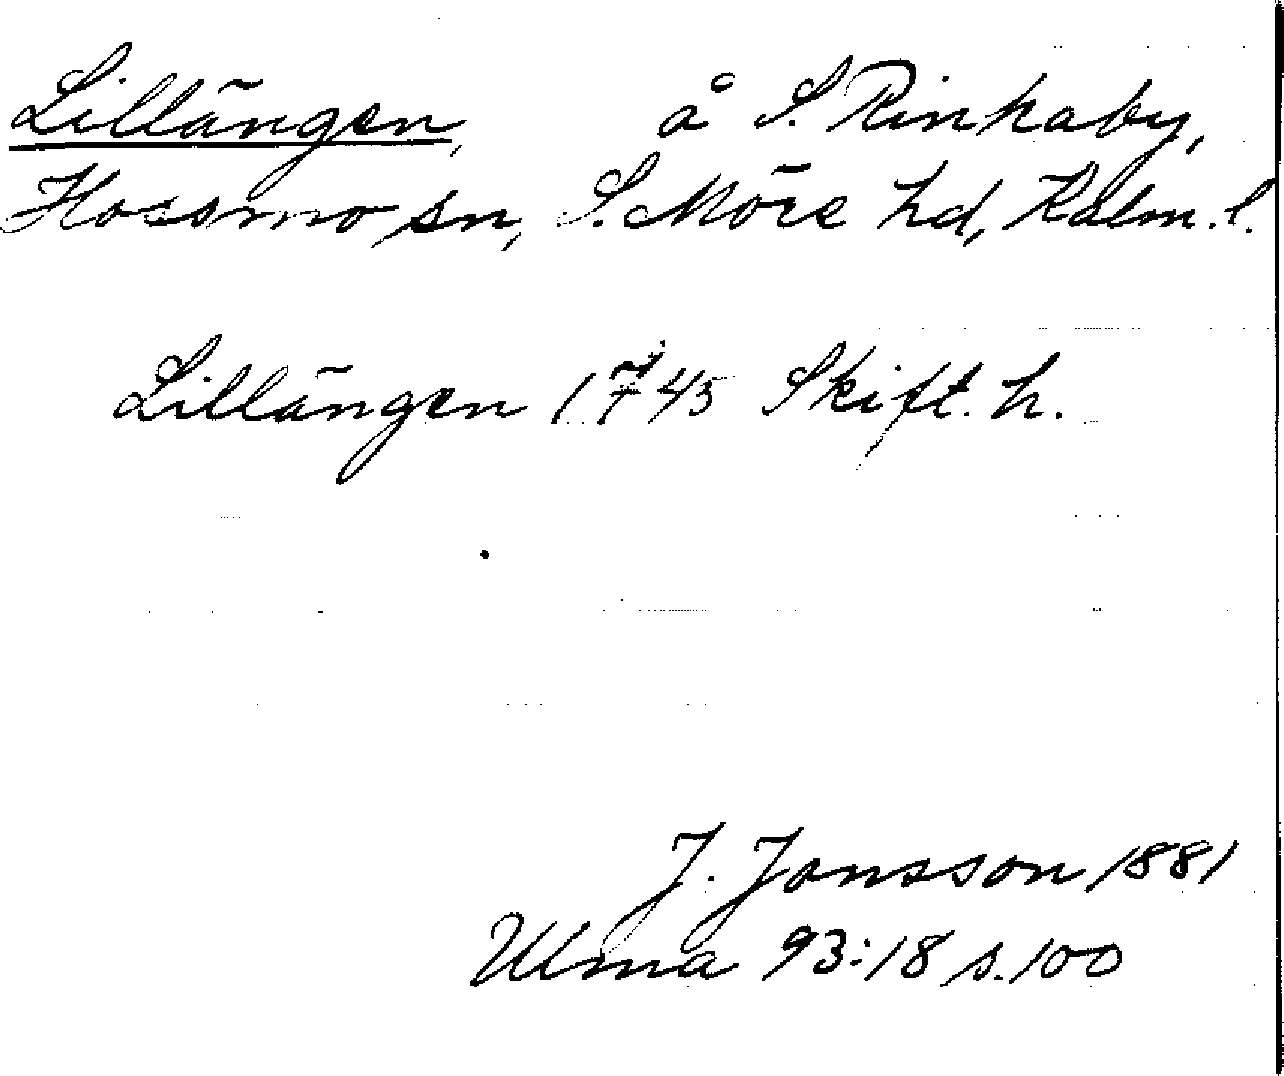 Lillängen, å S. Rinkaby,
Hossmo sn, S. Möre hd, Kalm. l.
Lillängen 1745 Skift. h.
J. Jonsson 1881
Ulma 93:18 s. 100